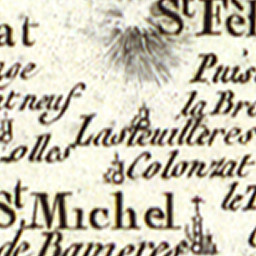 at
St Fel
Puis
nge
t neuf
la Bro
Lasfeuilleres
olles
Colonzat
St. Michel
le
de Banieres